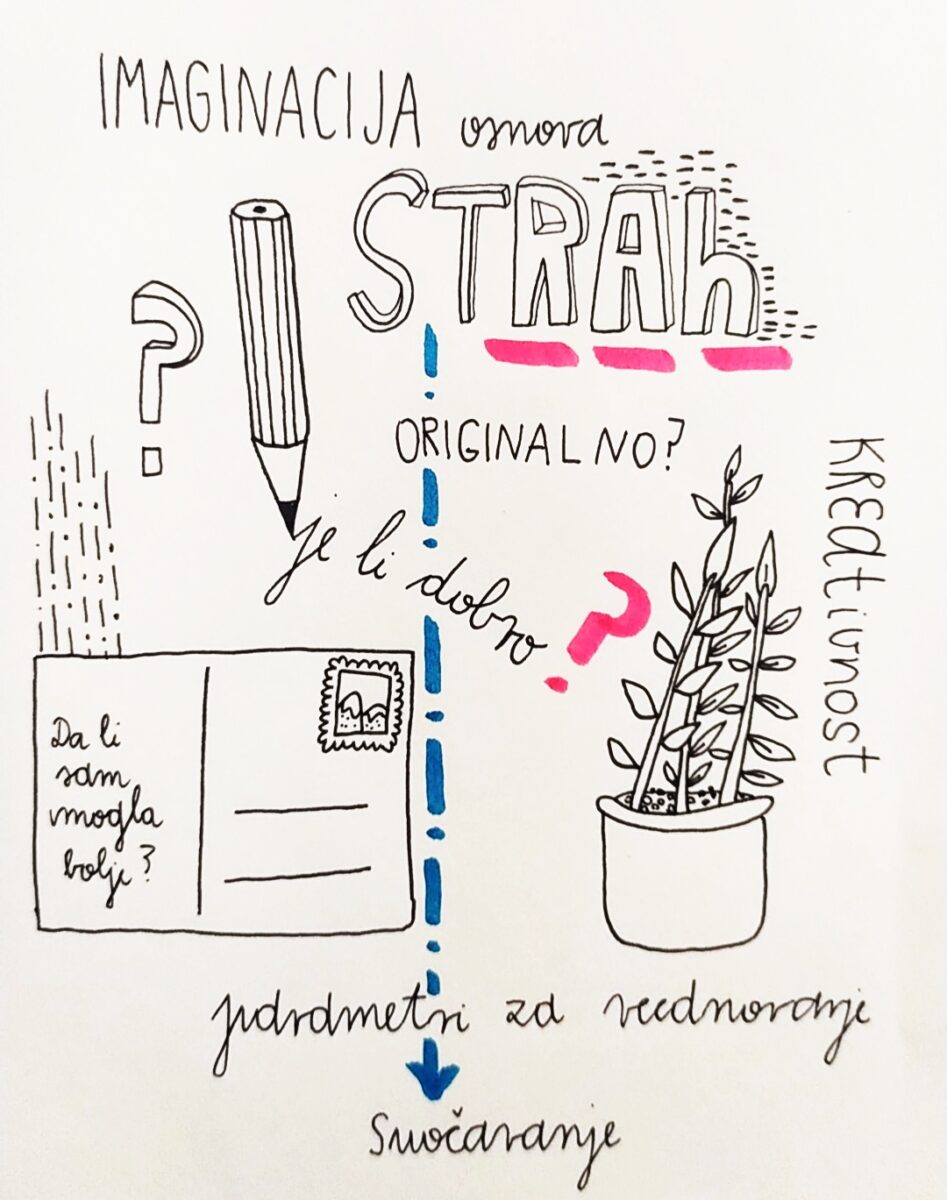 IMAGINACIJA osnova
STRAh
?
ORIGINALNO?
Je li dobro?
KREatIvnost
Da li
sam
mogla
bolje?
parametri za vrednovanje
Suočavanje